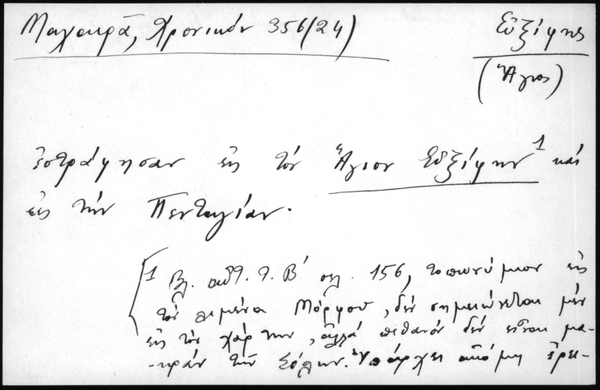 Μαχαιρᾶ, Χρονικόν 356/24)
Εὐξίφης
(Ἅγιος)
ἐστράφησαν εἰς τὸν Ἅγιον Εὐξίφην¹ καὶ
εἰς τὴν Πενταγίαν.
[1 Βλ. αὐτ. τ. Β΄ σελ. 156, τοπωνύμιον εἰς
τὸν λιμένα Μόρφου, δὲν σημειώνεται μὲν
εἰς τὸν χάρτην, ἀλλὰ πιθανὸν δὲν εἶναι μα-
κρὰν τῆς Σόλων. Ὑπάρχει ἀκόμη ἐρεί-